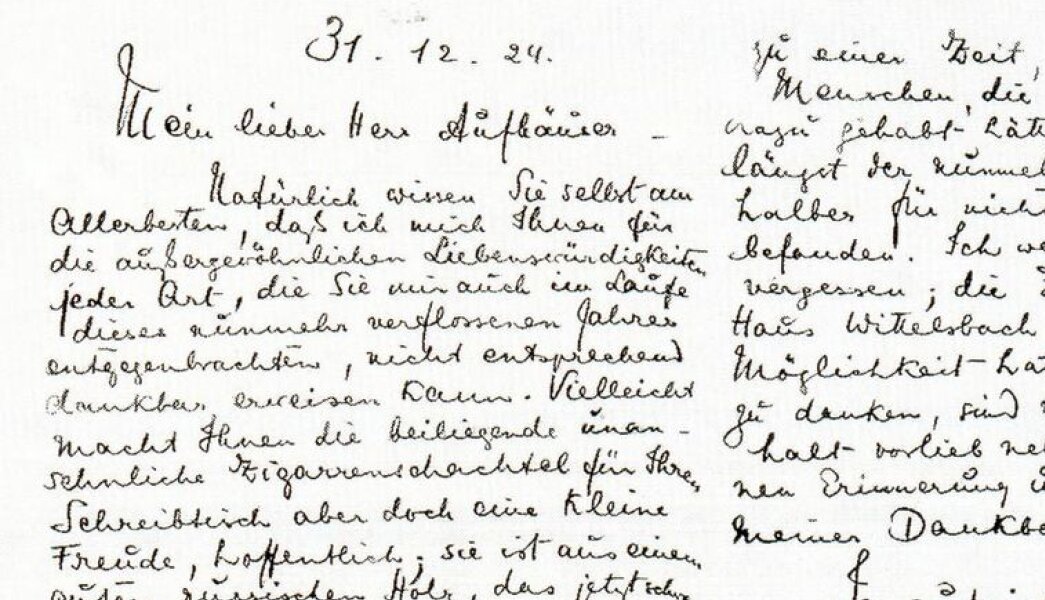 31. 12. 24.
Mein lieber Herr Aufhäuser –
Natürlich wissen Sie selbst am
Allerbesten, daß ich mich Ihnen für
die außergewöhnlichen Liebenswürdigkeiten
jeder Art, die Sie mir auch im Laufe
dieses nunmehr verflossenen Jahres
entgegenbrachten, nicht entsprechend
dankbar erweisen kann. Vielleicht
macht Ihnen die beiliegende unan-
sehnliche Zigarrenschachtel für Ihren
Schreibtisch aber doch eine kleine
Freude, hoffentlich; sie ist aus einem
guten russischen Holz, das jetzt
zu einer Zeit,
Menschen, die
dazu gehabt hät
längst der nunmeh
halber für nicht
befanden. Ich we
vergessen; die
Haus Wittelsbach
Möglichkeit hat
zu danken, sind
halt vorlieb neh
nen Erinnerung
meiner Dankba